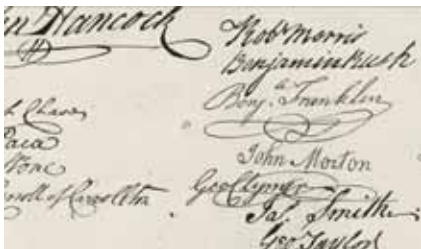 Hancock
Chase
Paca
Stone
Carroll of Carrollton
Robt Morris
Benjamin Rush
Benja. Franklin
John Morton
Geo Clymer
Jas. Smith
Geo Taylor